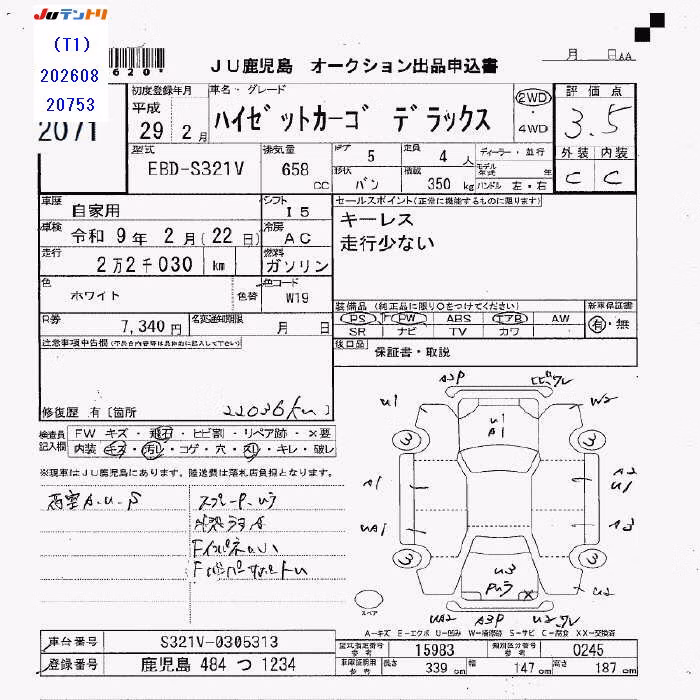 JUテントリ
(T1)
202608
20753
620*
2071
JU鹿児島 オークション出品申込書
月 日
初度登録年月
平成
29 2月
車名・グレード
ハイゼットカーゴ デラックス
2WD
・
4WD
評価点
3.5
外装 内装
C C
型式
EBD-S321V
排気量
658
cc
ドア
5
定員
4 人
ディーラー・並行
形状
バン
積載
350 kg
モデル
年式 年
ハンドル 左・右
車歴
自家用
シフト
I5
車検
令和 9年 2月(22日)
冷房
AC
走行
2万2千030 km
燃料
ガソリン
色
ホワイト
色替
色コード
W19
R券
7,340円
名変通知期限
月 日
セールスポイント(正常に機能するものに限り)
キーレス
走行少ない
装備品(純正品に限り○をつけてください)
新車保証書
PS PW ABS エアB AW
SR ナビ TV カワ
有・無
後日品
保証書・取説
注意事項申告欄
修復歴 有[箇所
22036km
検査員
記入欄
FW キズ・飛石・ヒビ割・リペア跡・×要
内装 キズ・汚レ・コゲ・穴・スレ・キレ・破レ
※現車はJU鹿児島にあります。陸送費は落札店負担となります。
A3P
U1
W2
U1
A1
3
3
A1
A2
U1
UA1
A3
3
3
U3
U2
UA2
A3P
スペア
A-キズ E-エクボ U-凹み W-補修跡 S-サビ C-腐食 XX-交換済
車台番号
S321V-0305313
登録番号
鹿児島 484 つ 1234
型式指定番号
参考
15983
類別区分番号
参考
0245
車庫証明用
参考
長さ
339 cm
幅
147 cm
高さ
187 cm